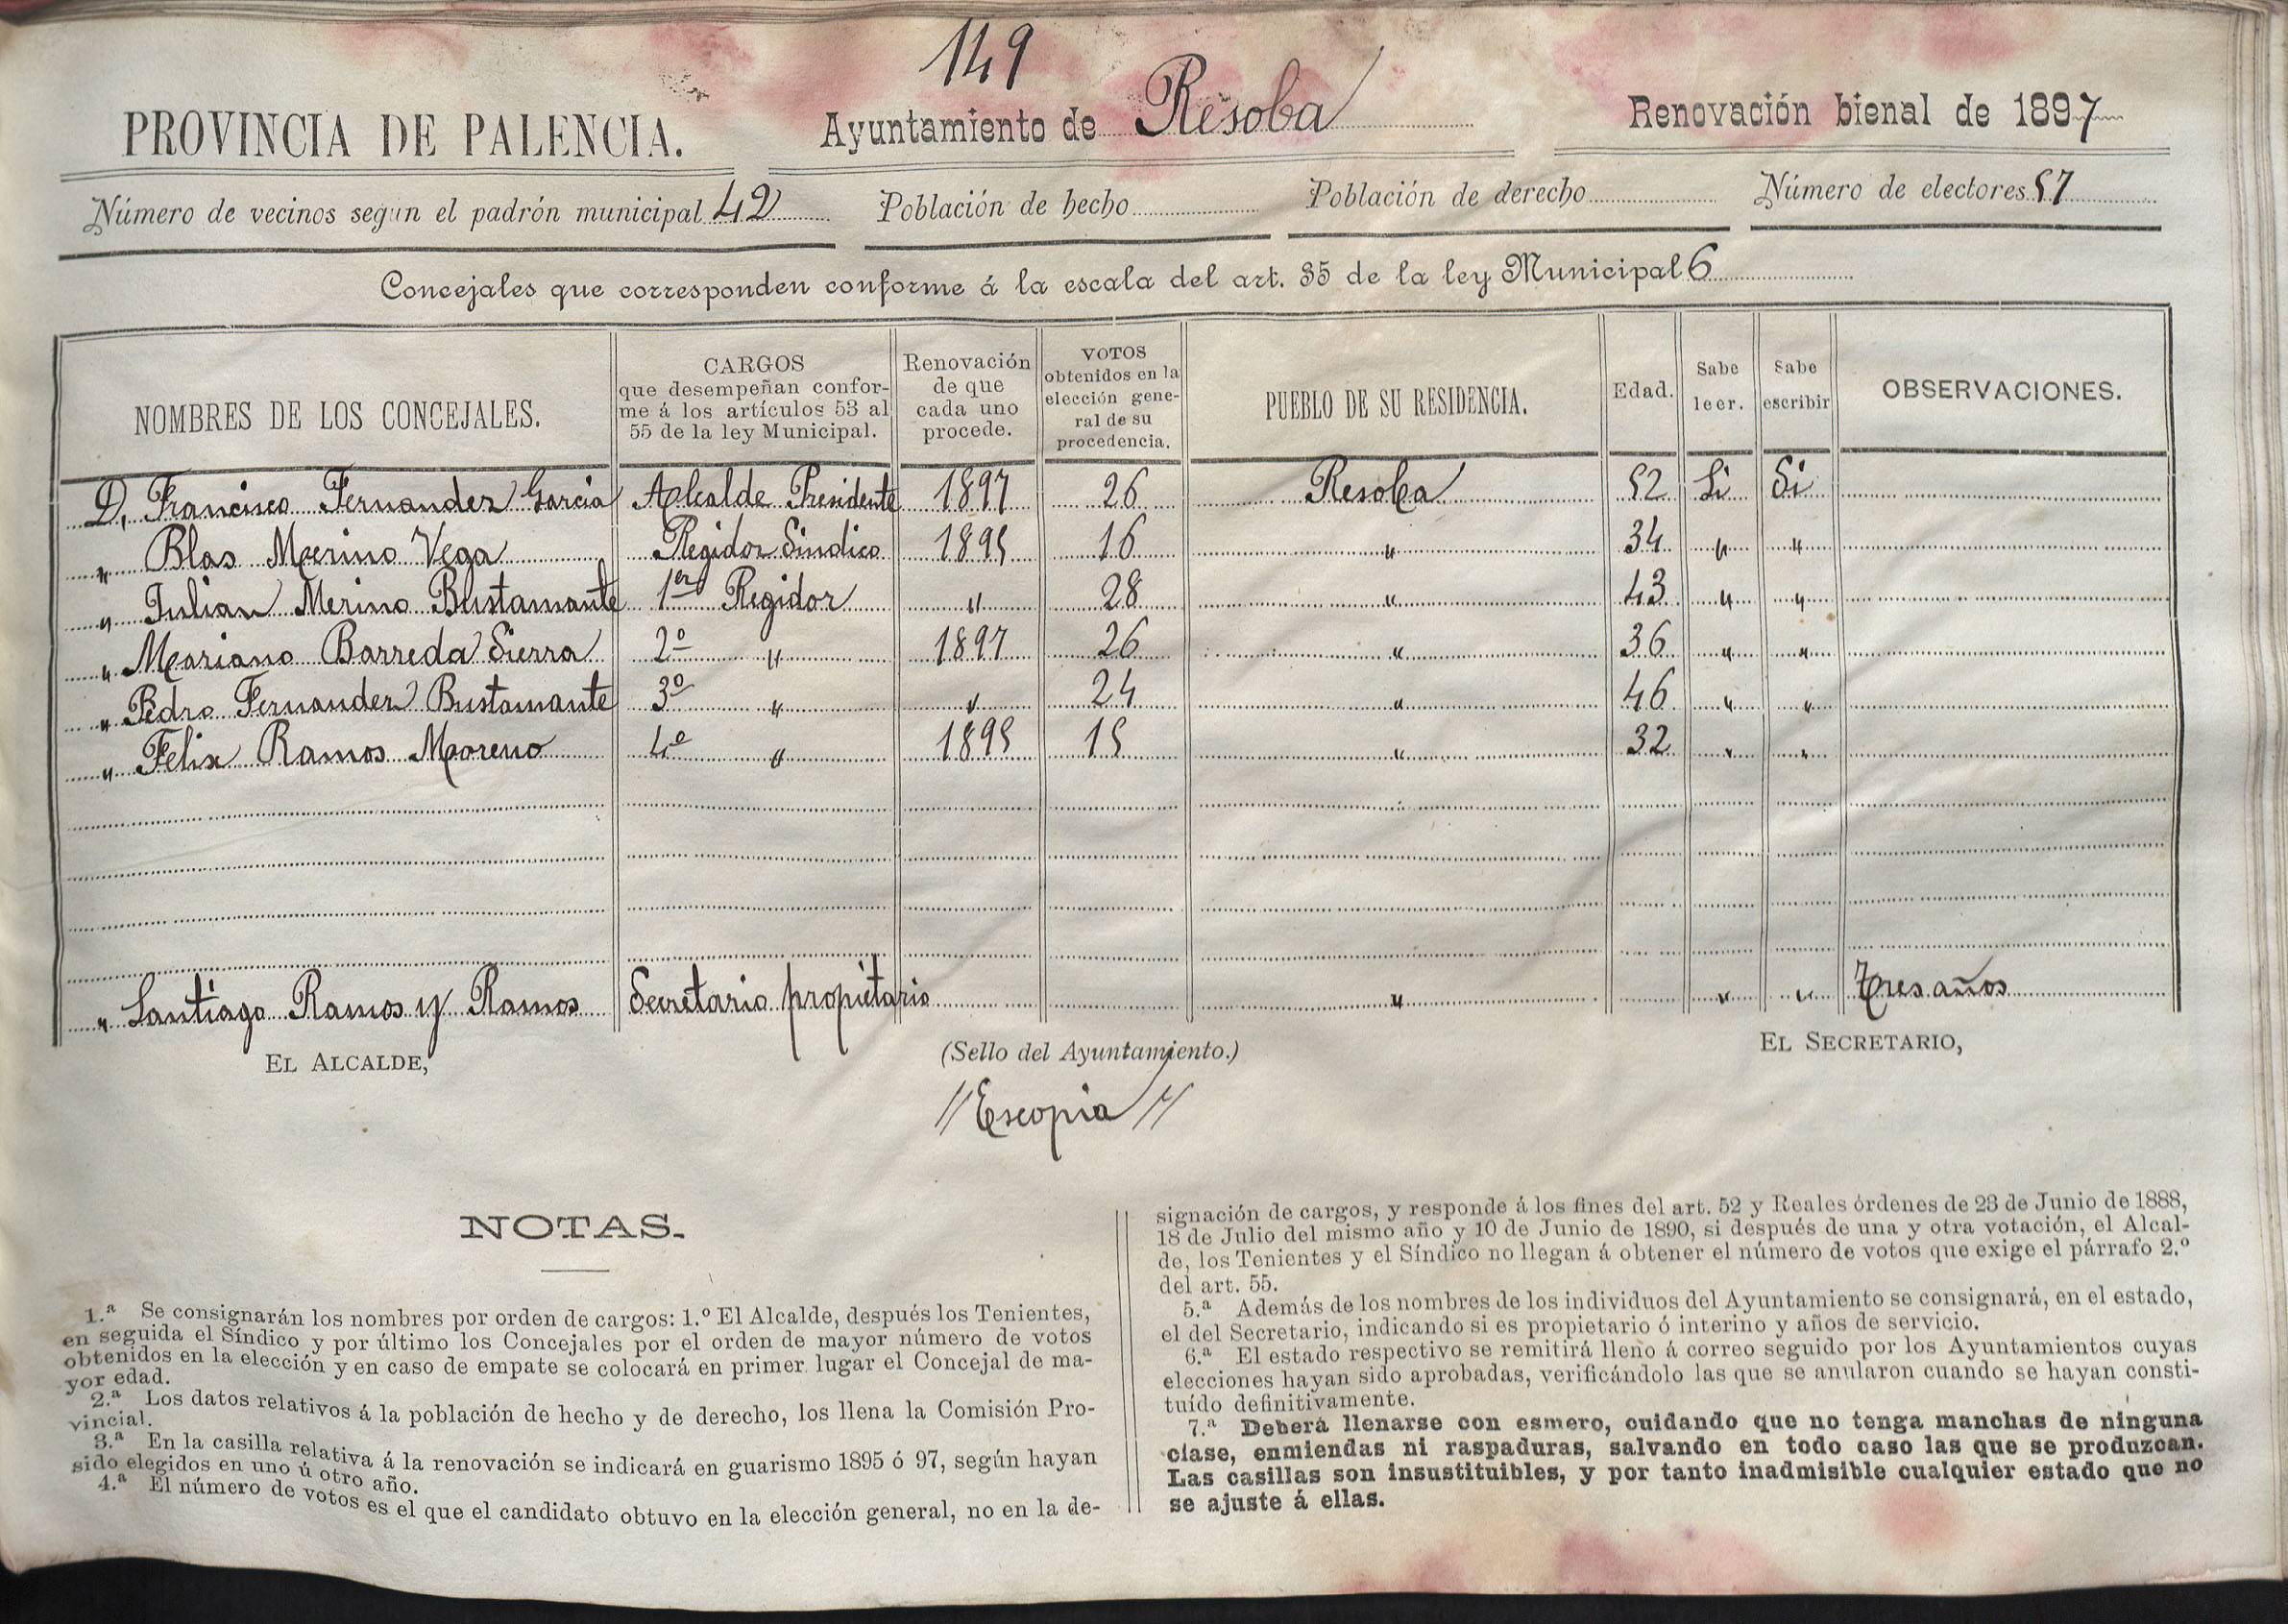 149
PROVINCIA DE PALENCIA.
Ayuntamiento de Resoba
Renovación bienal de 1897
Número de vecinos según el padrón municipal 42
Población de hecho
Población de derecho
Número de electores 57
Concejales que corresponden conforme á la escala del art. 35 de la ley Municipal 6
NOMBRES DE LOS CONCEJALES.
CARGOS
que desempeñan confor-
me á los artículos 53 al
55 de la ley Municipal.
Renovación
de que
cada uno
procede.
VOTOS
obtenidos en la
elección gene-
ral de su
procedencia.
PUEBLO DE SU RESIDENCIA.
Edad.
Sabe
leer.
Sabe
escribir
OBSERVACIONES.
D. Francisco Fernandez Garcia Alcalde Presidente 1897 26 Resoba 52 Si Si
" Blas Merino Vega Regidor Sindico 1895 16 " 34 " "
" Julian Merino Bustamante 1er Regidor " 28 " 43 " "
" Mariano Barreda Sierra 2º " 1897 26 " 36 " "
" Pedro Fernandez Bustamante 3º " " 24 " 46 " "
" Felix Ramos Moreno 4º " 1895 15 " 32 " "
" Santiago Ramos y Ramos Secretario propietario " " " tres años
EL ALCALDE,
(Sello del Ayuntamiento.)
EL SECRETARIO,
// Escopia //
NOTAS.
1.ª Se consignarán los nombres por orden de cargos: 1.º El Alcalde, después los Tenientes,
en seguida el Síndico y por último los Concejales por el orden de mayor número de votos
obtenidos en la elección y en caso de empate se colocará en primer lugar el Concejal de ma-
yor edad.
2.ª Los datos relativos á la población de hecho y de derecho, los llena la Comisión Pro-
vincial.
3.ª En la casilla relativa á la renovación se indicará en guarismo 1895 ó 97, según hayan
sido elegidos en uno ú otro año.
4.ª El número de votos es el que el candidato obtuvo en la elección general, no en la de-
signación de cargos, y responde á los fines del art. 52 y Reales órdenes de 23 de Junio de 1888,
18 de Julio del mismo año y 10 de Junio de 1890, si después de una y otra votación, el Alcal-
de, los Tenientes y el Síndico no llegan á obtener el número de votos que exige el párrafo 2.º
del art. 55.
5.ª Además de los nombres de los individuos del Ayuntamiento se consignará, en el estado,
el del Secretario, indicando si es propietario ó interino y años de servicio.
6.ª El estado respectivo se remitirá lleno á correo seguido por los Ayuntamientos cuyas
elecciones hayan sido aprobadas, verificándolo las que se anularon cuando se hayan consti-
tuído definitivamente.
7.ª Deberá llenarse con esmero, cuidando que no tenga manchas de ninguna
clase, enmiendas ni raspaduras, salvando en todo caso las que se produzcan.
Las casillas son insustituibles, y por tanto inadmisible cualquier estado que no
se ajuste á ellas.